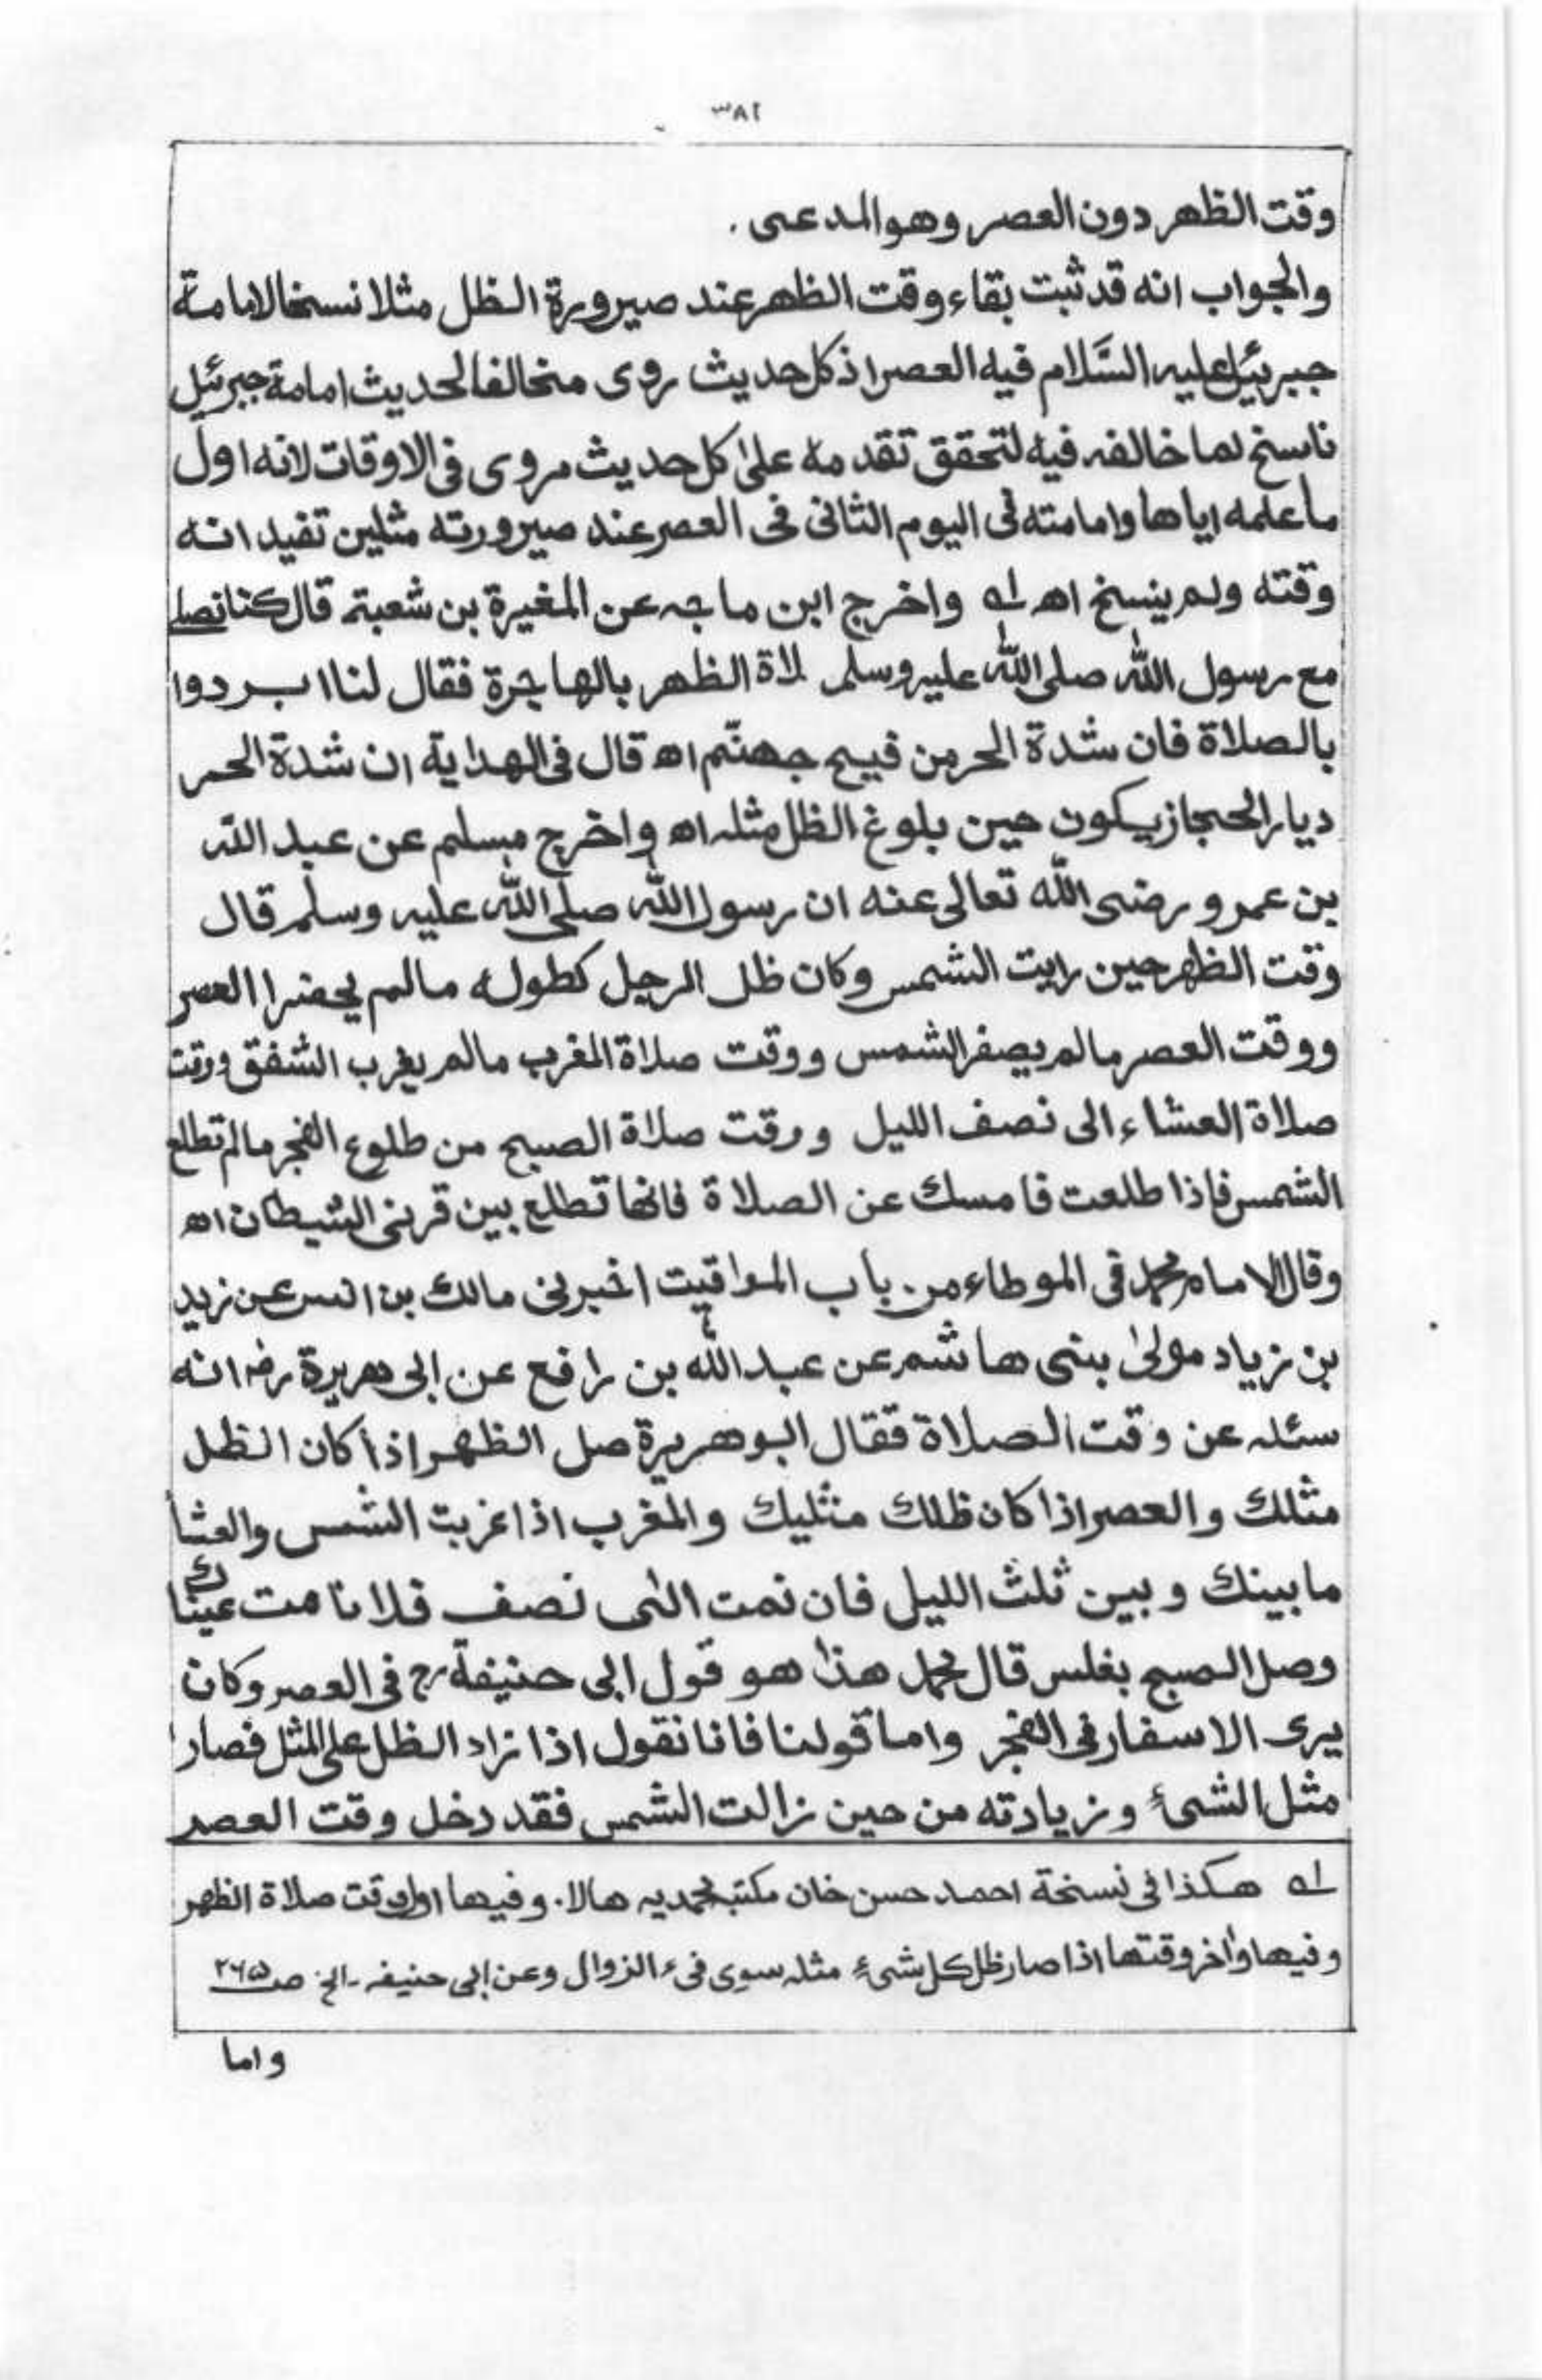 ٣٨٢
وقت الظهر دون العصر وهو المدعى .
والجواب انه قد ثبت بقاء وقت الظهر عند صيرورة الظل مثلا نسخا لامامة
جبرئيل عليه السَّلام فيه العصر اذ كل حديث روى مخالفا لحديث امامة جبرئيل
ناسخ لما خالفه فيه لتحقق تقدمه على كل حديث مروى فى الاوقات لانه اول
ما علمه اياها وامامته فى اليوم الثانى فى العصر عند صيرورته مثلين تفيد انه
وقته ولم ينسخ اه له واخرج ابن ماجه عن المغيرة بن شعبة قال كنا نصلى
مع رسول الله صلى الله عليه وسلم لاة الظهر بالهاجرة فقال لنا ابردوا
بالصلاة فان شدة الحر من فيح جهنّم اه قال فى الهداية ان شدة الحر
ديار الحجاز يكون حين بلوغ الظل مثله اه واخرج مسلم عن عبد الله
بن عمرو رضى الله تعالى عنه ان رسول الله صلى الله عليه وسلم قال
وقت الظهر حين رايت الشمس وكان ظل الرجل كطوله مالم يحضرا العصر
ووقت العصر مالم يصفر الشمس ووقت صلاة المغرب مالم يغرب الشفق ووقت
صلاة العشاء الى نصف الليل ووقت صلاة الصبح من طلوع الفجر مالم تطلع
الشمس فاذا طلعت فامسك عن الصلاة فانها تطلع بين قرنى الشيطان اه
وقال الامام محمد فى الموطاء من باب المواقيت اخبرنى مالك بن انس عن زيد
بن زياد مولىٰ بنى هاشم عن عبد الله بن رافع عن ابى هريرة رض انه
سئله عن وقت الصلاة فقال ابو هريرة صل الظهر اذا كان الظل
مثلك والعصر اذا كان ظلك مثليك والمغرب اذا غربت الشمس والعشا
ما بينك وبين ثلث الليل فان نمت الى نصف فلا نامت عيناك
وصل الصبح بغلس قال محمد هذا هو قول ابى حنيفة رح فى العصر وكان
يرى الاسفار فى الفجر واما قولنا فانا نقول اذا زاد الظل على المثل فصار
مثل الشىء وزيادته من حين زالت الشمس فقد دخل وقت العصر
له هكذا فى نسخة احمد حسن خان مكتبه محمديه هالا. وفيها اول وقت صلاة الظهر
وفيها واٰخر وقتها اذا صار ظل كل شىء مثله سوى فىء الزوال وعن ابى حنيفه ـ الخ ص ٢٦٥
واما